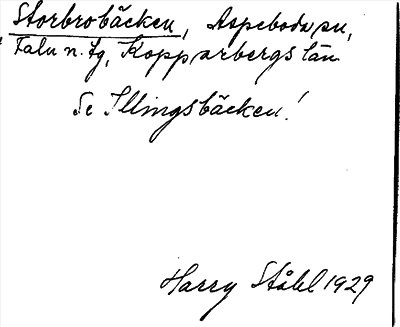 Storbrobäcken, Aspeboda sn,
Falu n. tg, Kopparbergs län
Se Illingsbäcken!
Harry Ståhl 1929